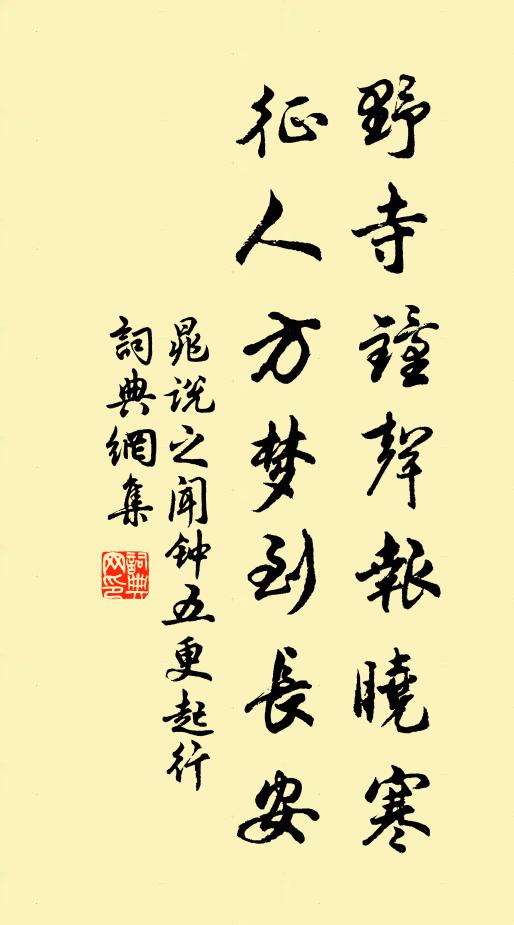 野寺鐘聲報曉寒
征人方梦到長安
晁说之闻钟五更起行
詞典網集
詞典网印